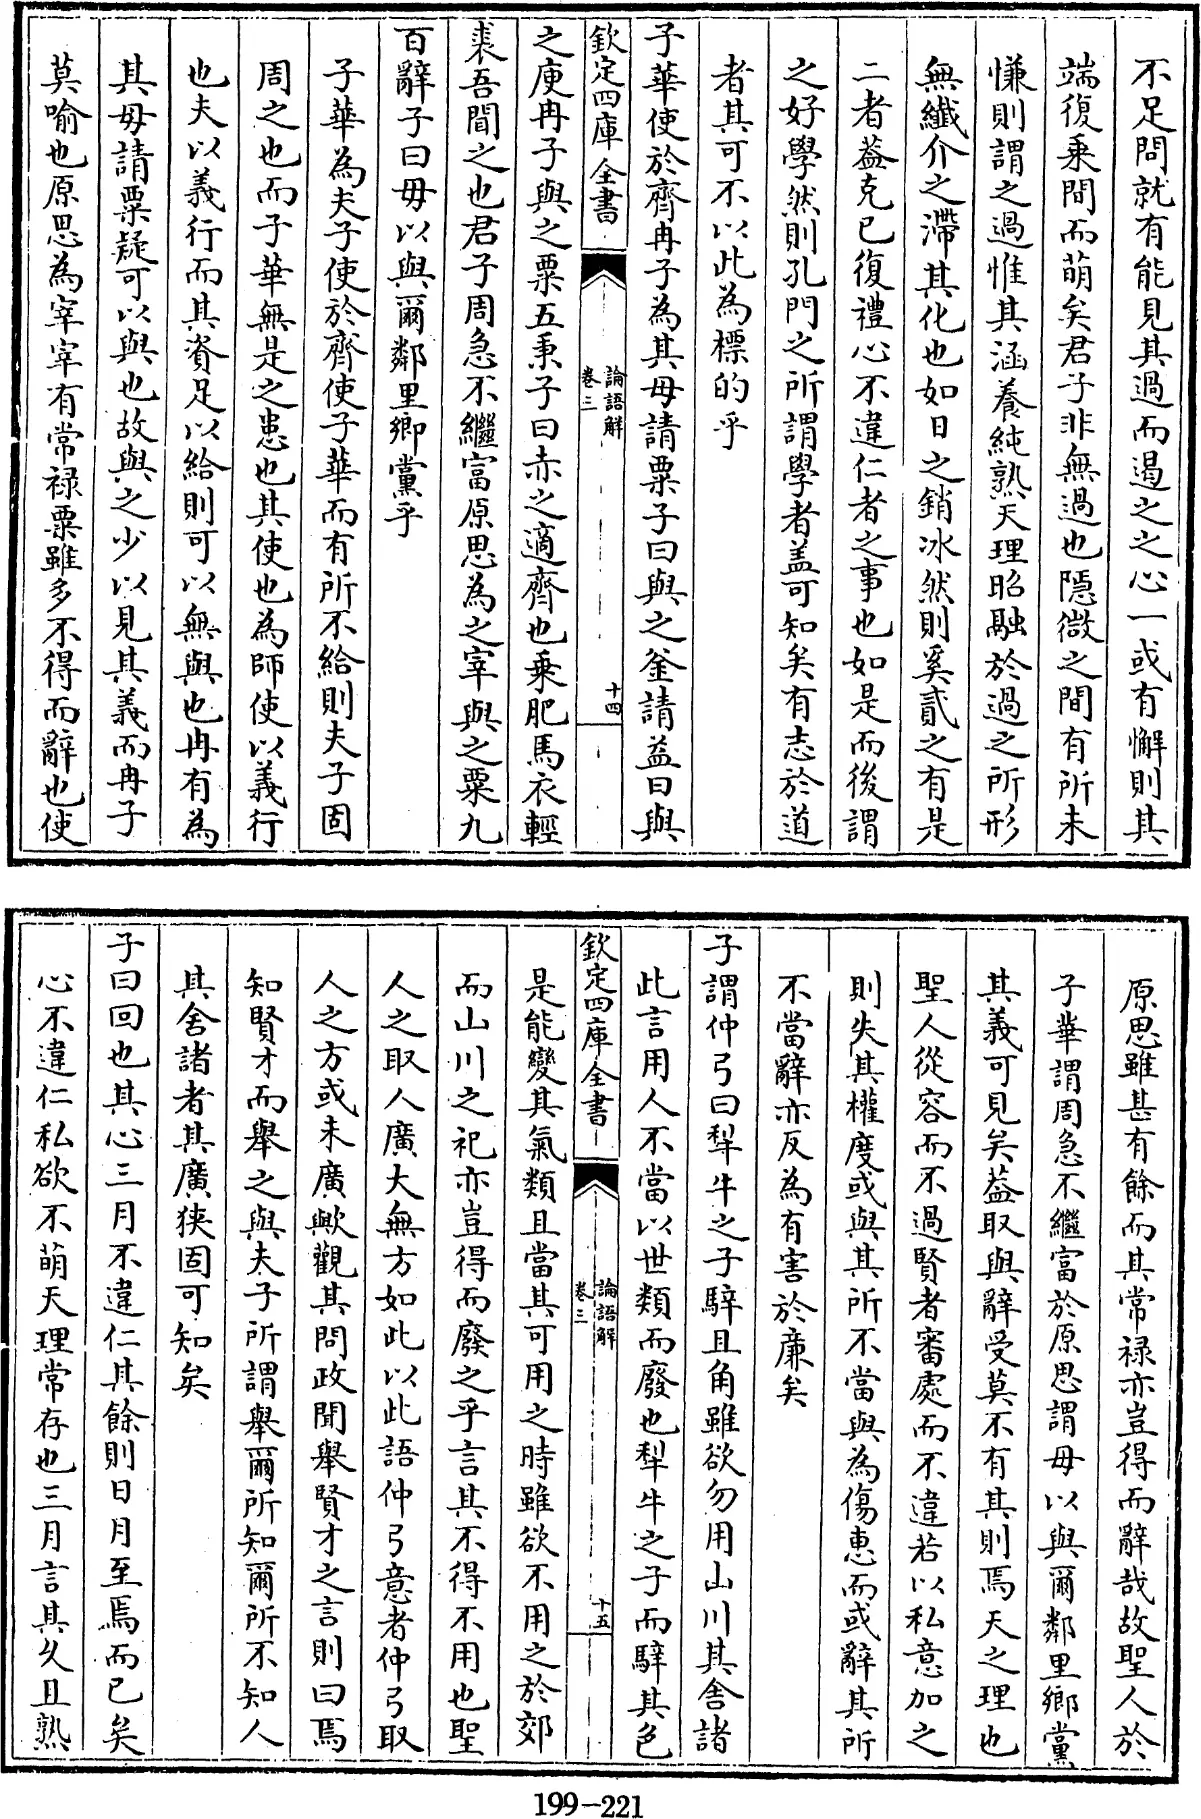 不足問就有能見其過而遏之之心一或有懈則其
端復乗間而萌矣君子非無過也隠微之間有所未
慊則謂之過惟其涵養純熟天理昭融於過之所形
無纎介之滯其化也如日之銷冰然則奚貳之有是
二者葢克己復禮心不違仁者之事也如是而後謂
之好學然則孔門之所謂學者盖可知矣有志於道
者其可不以此為標的乎
子華使於齊冉子為其母請粟子曰與之釜請益曰與
欽定四庫全書
論語解
卷三
十四
之庾冉子與之粟五秉子曰赤之適齊也乗肥馬衣輕
裘吾聞之也君子周急不繼富原思為之宰與之粟九
百辭子曰毋以與爾鄰里鄉黨乎
子華為夫子使於齊使子華而有所不給則夫子固
周之也而子華無是之患也其使也為師使以義行
也夫以義行而其資足以給則可以無與也冉有為
其母請粟疑可以與也故與之少以見其義而冉子
莫喻也原思為宰宰有常禄粟雖多不得而辭也使
原思雖甚有餘而其常禄亦豈得而辭哉故聖人於
子華謂周急不繼富於原思謂毋以與爾鄰里鄉黨
其義可見矣葢取與辭受莫不有其則焉天之理也
聖人從容而不過賢者審處而不違若以私意加之
則失其權度或與其所不當與為傷惠而或辭其所
不當辭亦反為有害於亷矣
子謂仲弓曰犁牛之子騂且角雖欲勿用山川其舍諸
此言用人不當以世類而廢也犁牛之子而騂其色
欽定四庫全書
論語解
卷三
十五
是能變其氣類且當其可用之時雖欲不用之於郊
而山川之祀亦豈得而廢之乎言其不得不用也聖
人之取人廣大無方如此以此語仲弓意者仲弓取
人之方或未廣歟觀其問政聞舉賢才之言則曰焉
知賢才而舉之與夫子所謂舉爾所知爾所不知人
其舍諸者其廣狹固可知矣
子曰回也其心三月不違仁其餘則日月至焉而已矣
心不違仁私欲不萌天理常存也三月言其久且熟
199-221